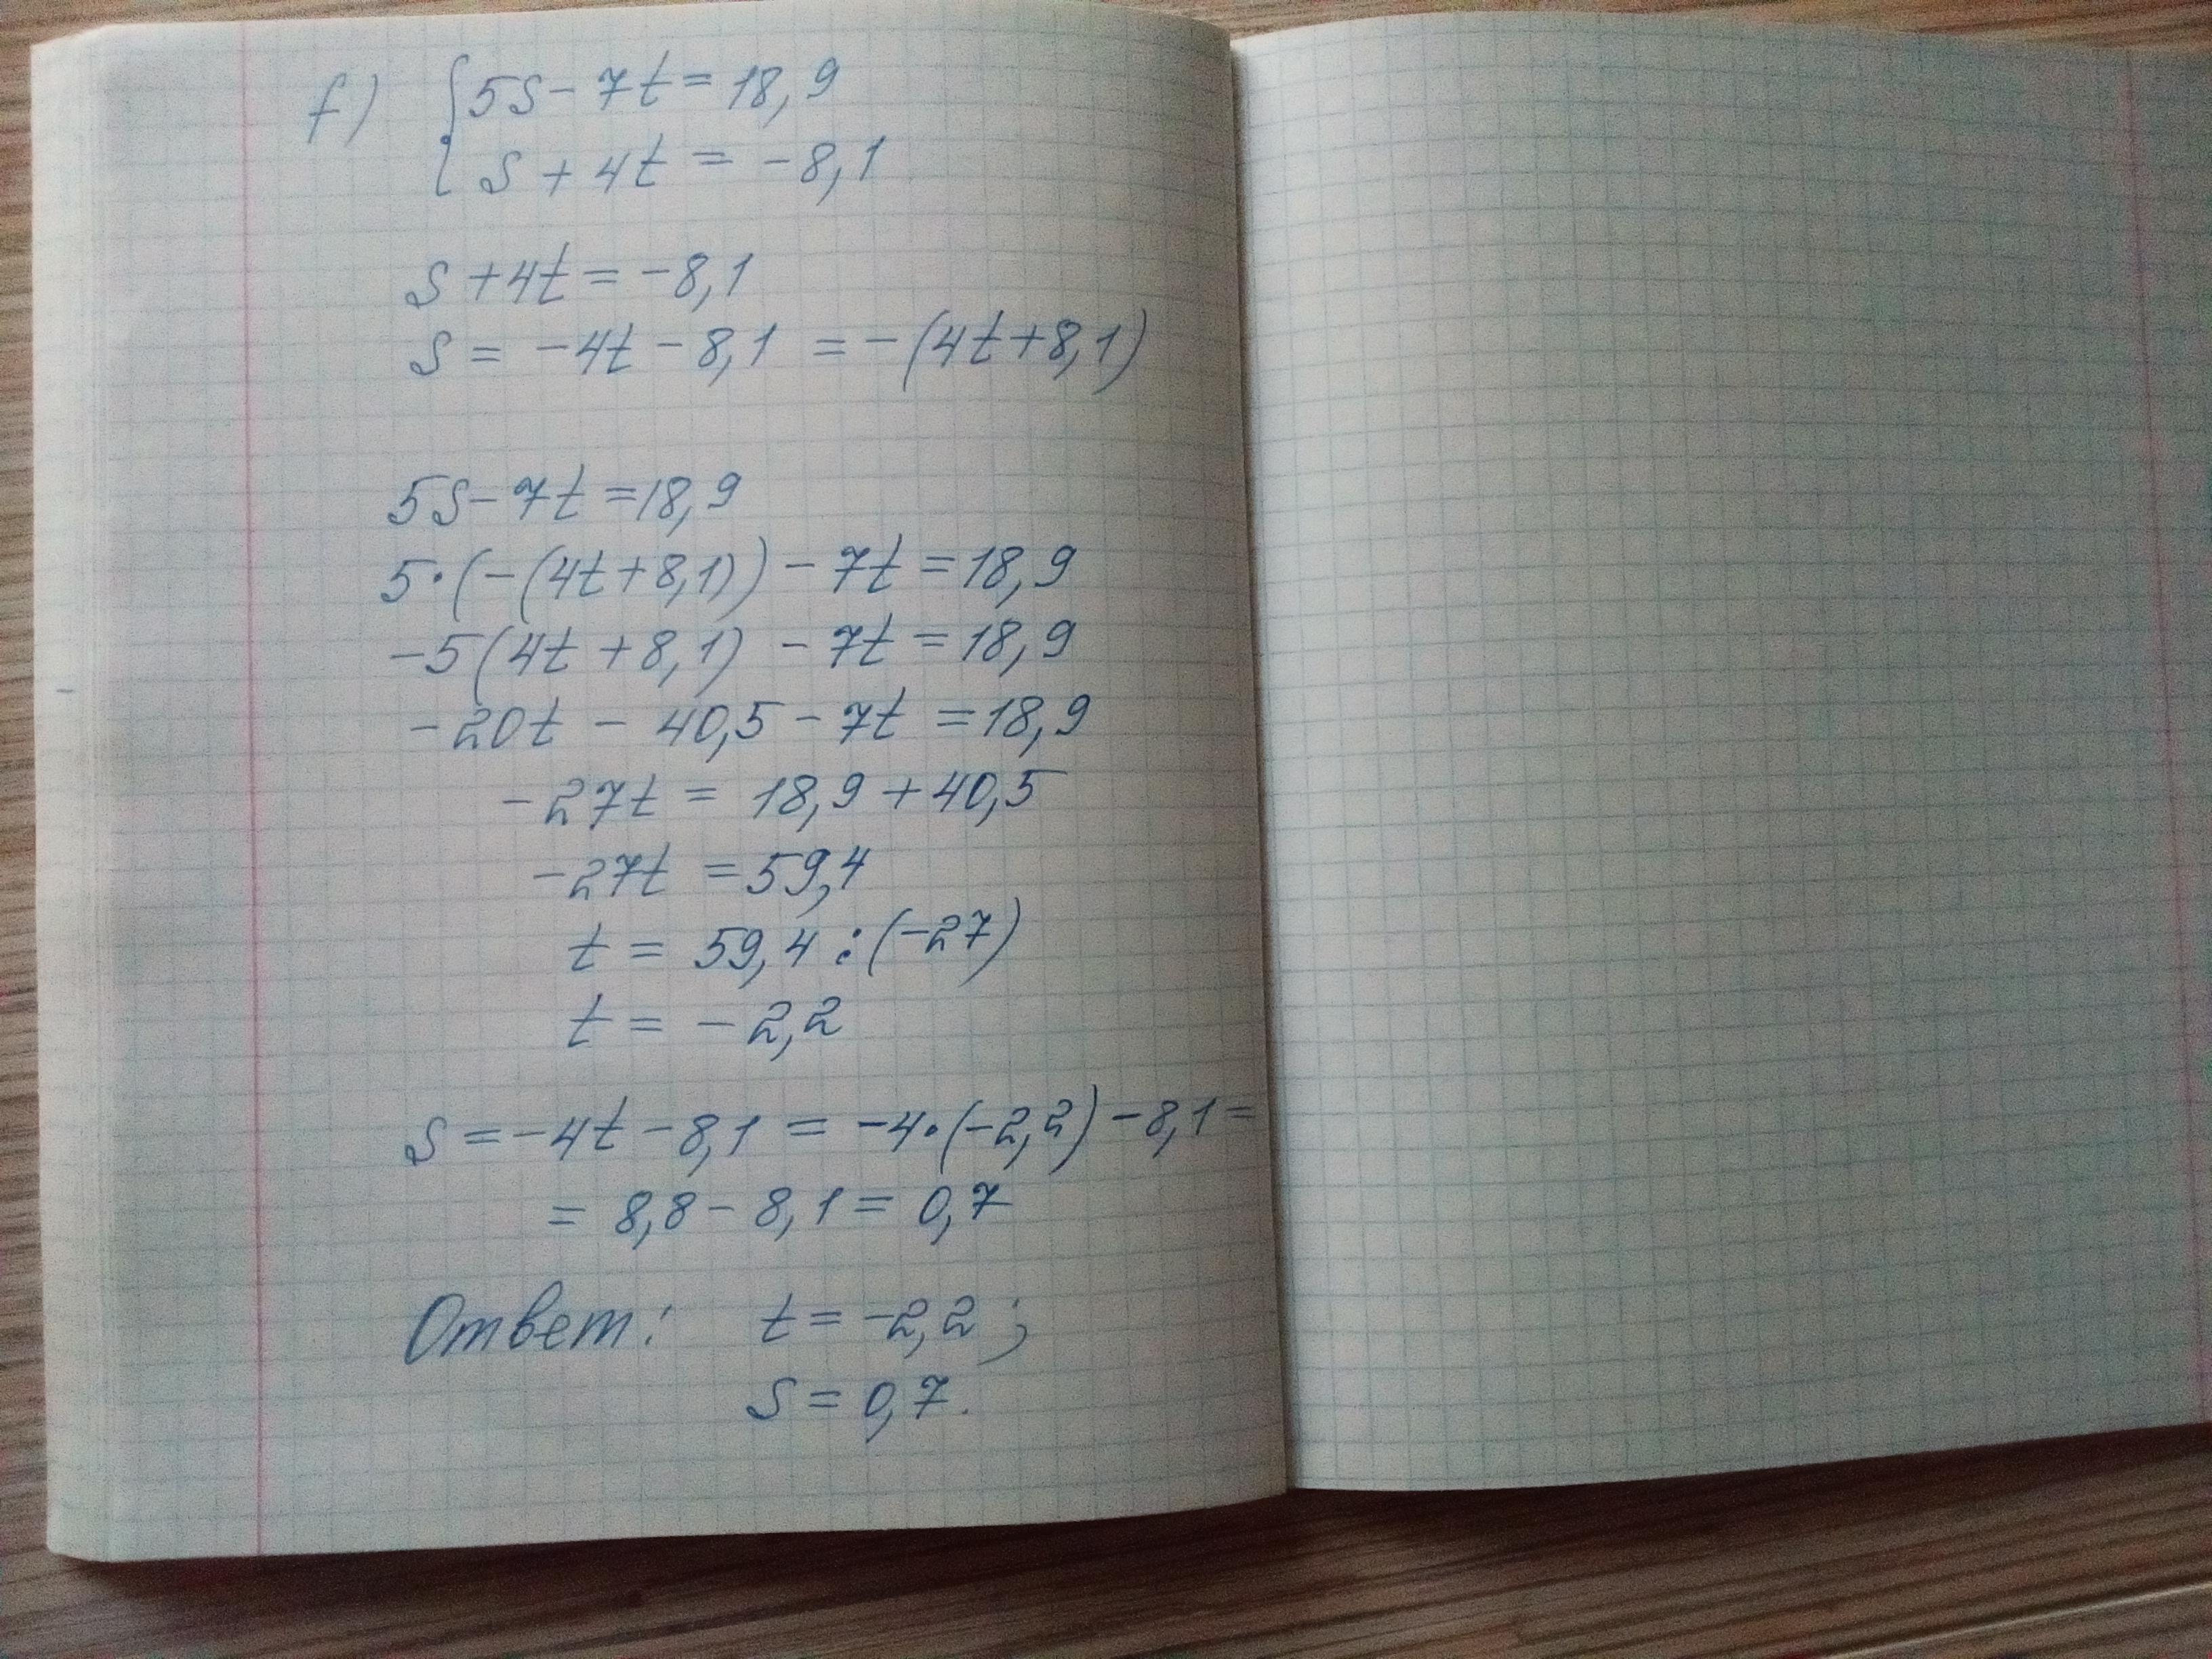 f) { 5s - 7t = 18,9
s + 4t = -8,1
s + 4t = -8,1
s = -4t - 8,1 = -(4t + 8,1)
5s - 7t = 18,9
5·(-(4t + 8,1)) - 7t = 18,9
-5(4t + 8,1) - 7t = 18,9
-20t - 40,5 - 7t = 18,9
-27t = 18,9 + 40,5
-27t = 59,4
t = 59,4 : (-27)
t = -2,2
s = -4t - 8,1 = -4·(-2,2) - 8,1 =
= 8,8 - 8,1 = 0,7
Ответ: t = -2,2;
s = 0,7.